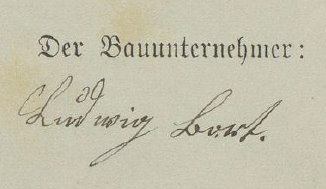 Der Bauunternehmer:
Ludwig Bort.